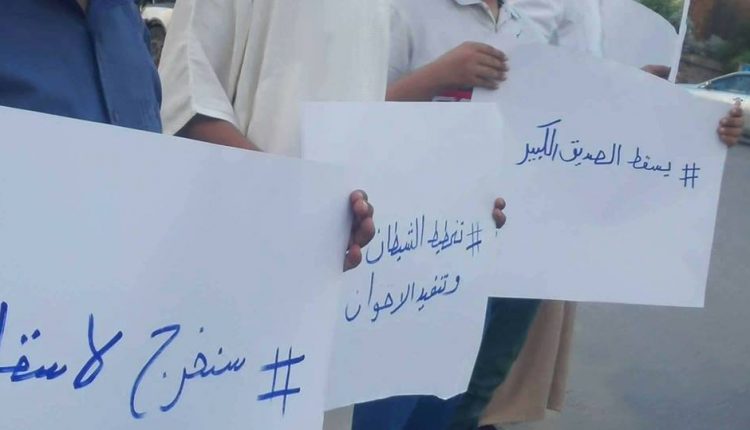 #يسقط الصديق الكبير
#تخطيط الشيطان
وتنفيد الاخوان
#سنخرج لاسقا